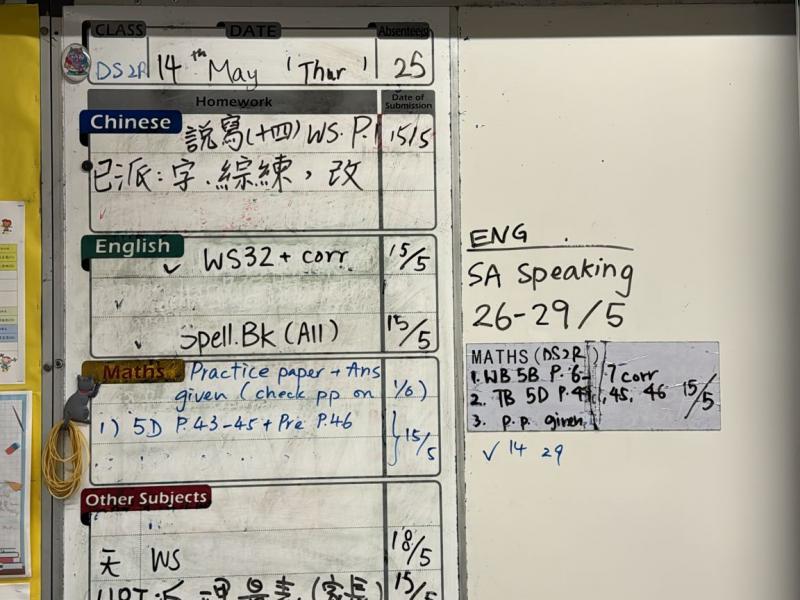 CLASS DATE Absentee(s)
DS2R 14th May (Thur) 25
Homework Date of Submission
Chinese
說寫(十四) WS. P.1 15/5
已派:字.綜練,改
English
WS32 + corr 15/5
Spell.Bk (All) 15/5
Maths
Practice paper + Ans
given (check pp on 1/6)
1) 5D P.43-45 + Pre P.46 15/5
Other Subjects
WS 18/5
(家長) 15/5
ENG
SA Speaking
26-29/5
MATHS (DS2R)
1. WB 5B P. 6-7 corr
2. TB 5D P. 45, 46 15/5
3. p.p. given
✓ 14 29